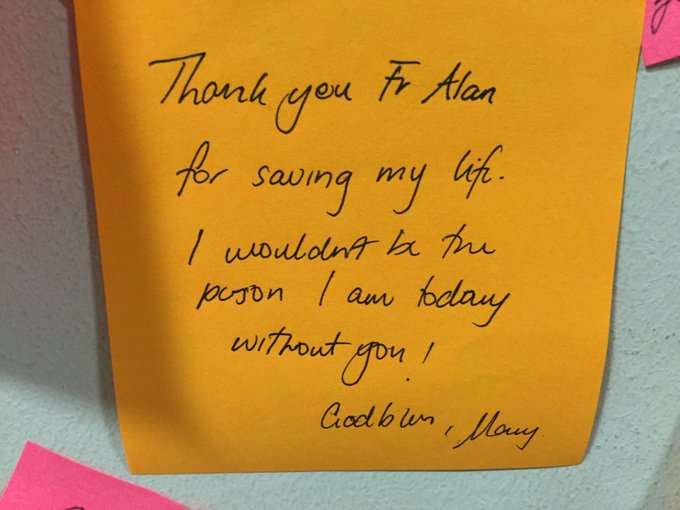 Thank you Fr Alan
for saving my life.
I wouldn't be the
person I am today
without you!
God bless, Mary